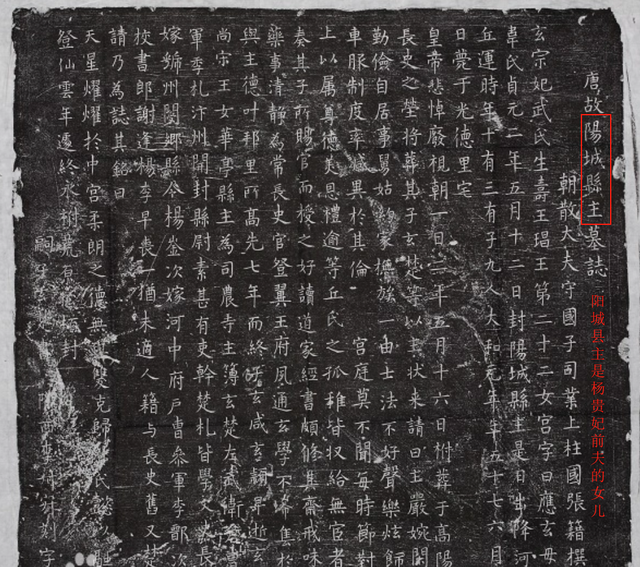 唐故陽城縣主墓誌
朝散大夫守國子司業上柱國張籍撰
玄宗妃武氏生壽王瑁王第二十二女宮字曰應玄母
韋氏貞元二年五月十二日封陽城縣主是日出降河
丘運時年十有三有子九人大和元年年五十七六月
日薨于光德里宅
皇帝悲悼廢視朝一日二年五月十六日祔葬于高陽
長史之塋將葬其子玄楚等以主狀来請曰主嚴婉閑
勤儉自居事舅姑家撫族一由士法不好聲樂炫飾
車服制度率減異於其倫 宮庭莫不聞每時節對
上以属尊德美恩禮逾等丘氏之孤稚皆収給無官者
奏其子所賜官而授之好讀道家經書頗脩其齋戒味
藥事清静為常長史官登翼王府夙通玄學不於
與主德叶和里所高先七年而終玄咸玄昇逝玄
尚宗王女華亭縣主為司農寺主簿玄楚左武衛倉曹
軍季札汴州開封縣尉素甚有吏幹楚札皆學文長
嫁虢州閿鄉縣令楊鉴次嫁河中府戶曹叅軍李鄑次
校書郎謝逢楊李早喪一猶未適人籍与長史舊又楚
請乃為誌其銘曰
天星燿燿於中宮柔朗之德無克歸
登仙雲年還終永祔封
刻字
阳城县主是杨贵妃前夫的女儿